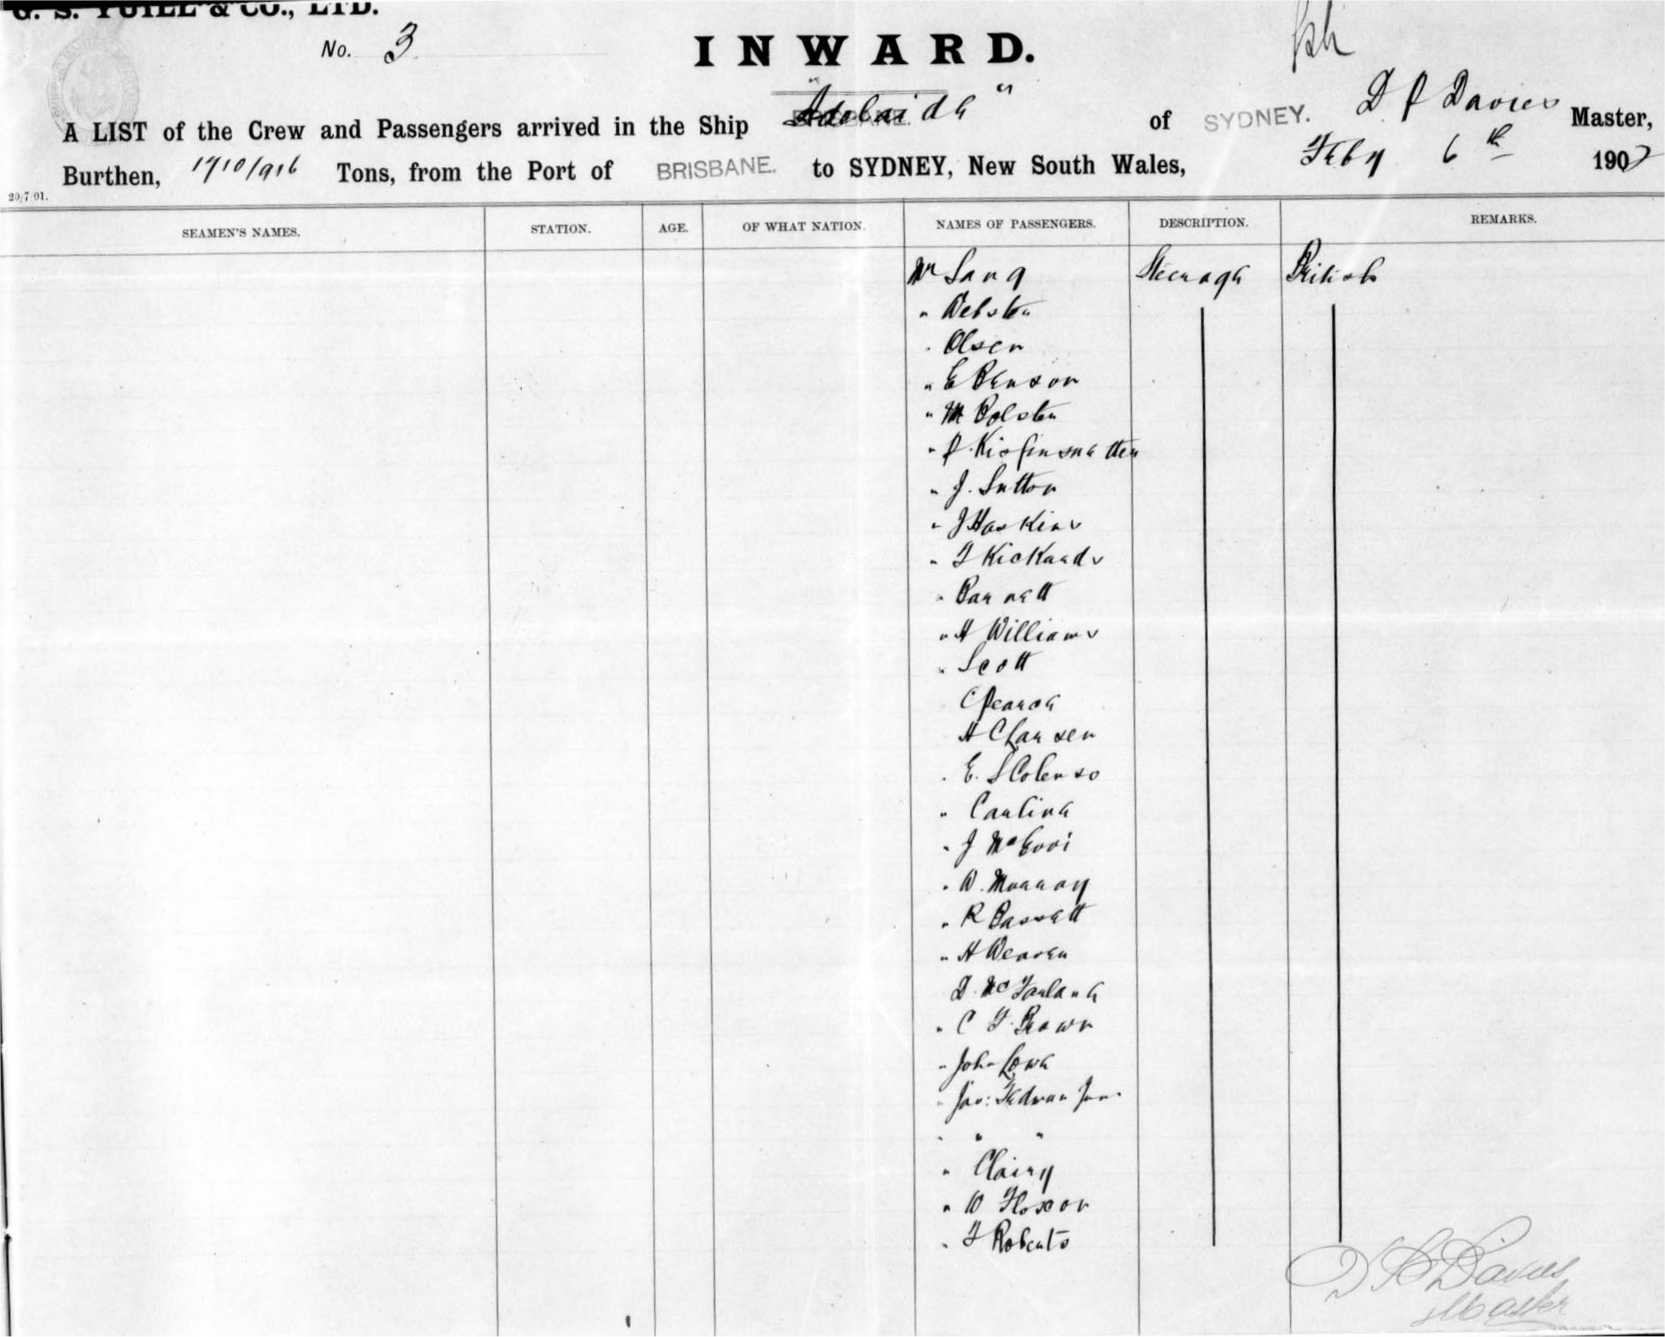 G. S. YUILL & CO., LTD.
No. 3
INWARD.
A LIST of the Crew and Passengers arrived in the Ship "Adelaide" of SYDNEY. D P Davies Master,
Burthen, 1710/916 Tons, from the Port of BRISBANE. to SYDNEY, New South Wales, Feby 6th 1907
20/7/01.
SEAMEN'S NAMES. STATION. AGE. OF WHAT NATION. NAMES OF PASSENGERS. DESCRIPTION. REMARKS.
Mr Lang Steerage British
" Webster
" Olsen
" E Benson
" M Bolster
" P.
" J. Sutton
" J Hoskins
" F Rickards
" Barnett
" H Williams
" Scott
C Pearce
H C Larsen
" E. S Colenso
" Carlina
" J
" W. Murray
" R Bassett
" H Weaver
D. McFarlane
" C F. Brown
" John Lowe
" Jas:
" " "
" Clairy
" W
" F Roberts
D P Davies
Master